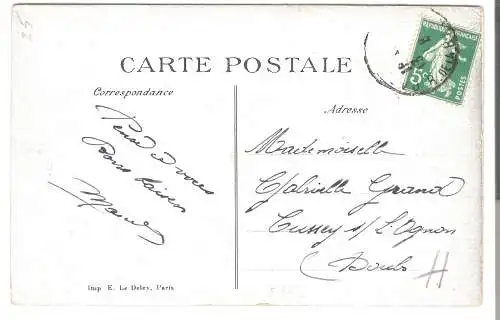 CARTE POSTALE
Correspondance
Adresse
RÉPUBLIQUE FRANÇAISE
5c
POSTES
Pensé à vous
bons baisers
Mademoiselle
Gabrielle Grand
Cussey s/ L'Ognon
Doubs
Imp E. Le Deley, Paris